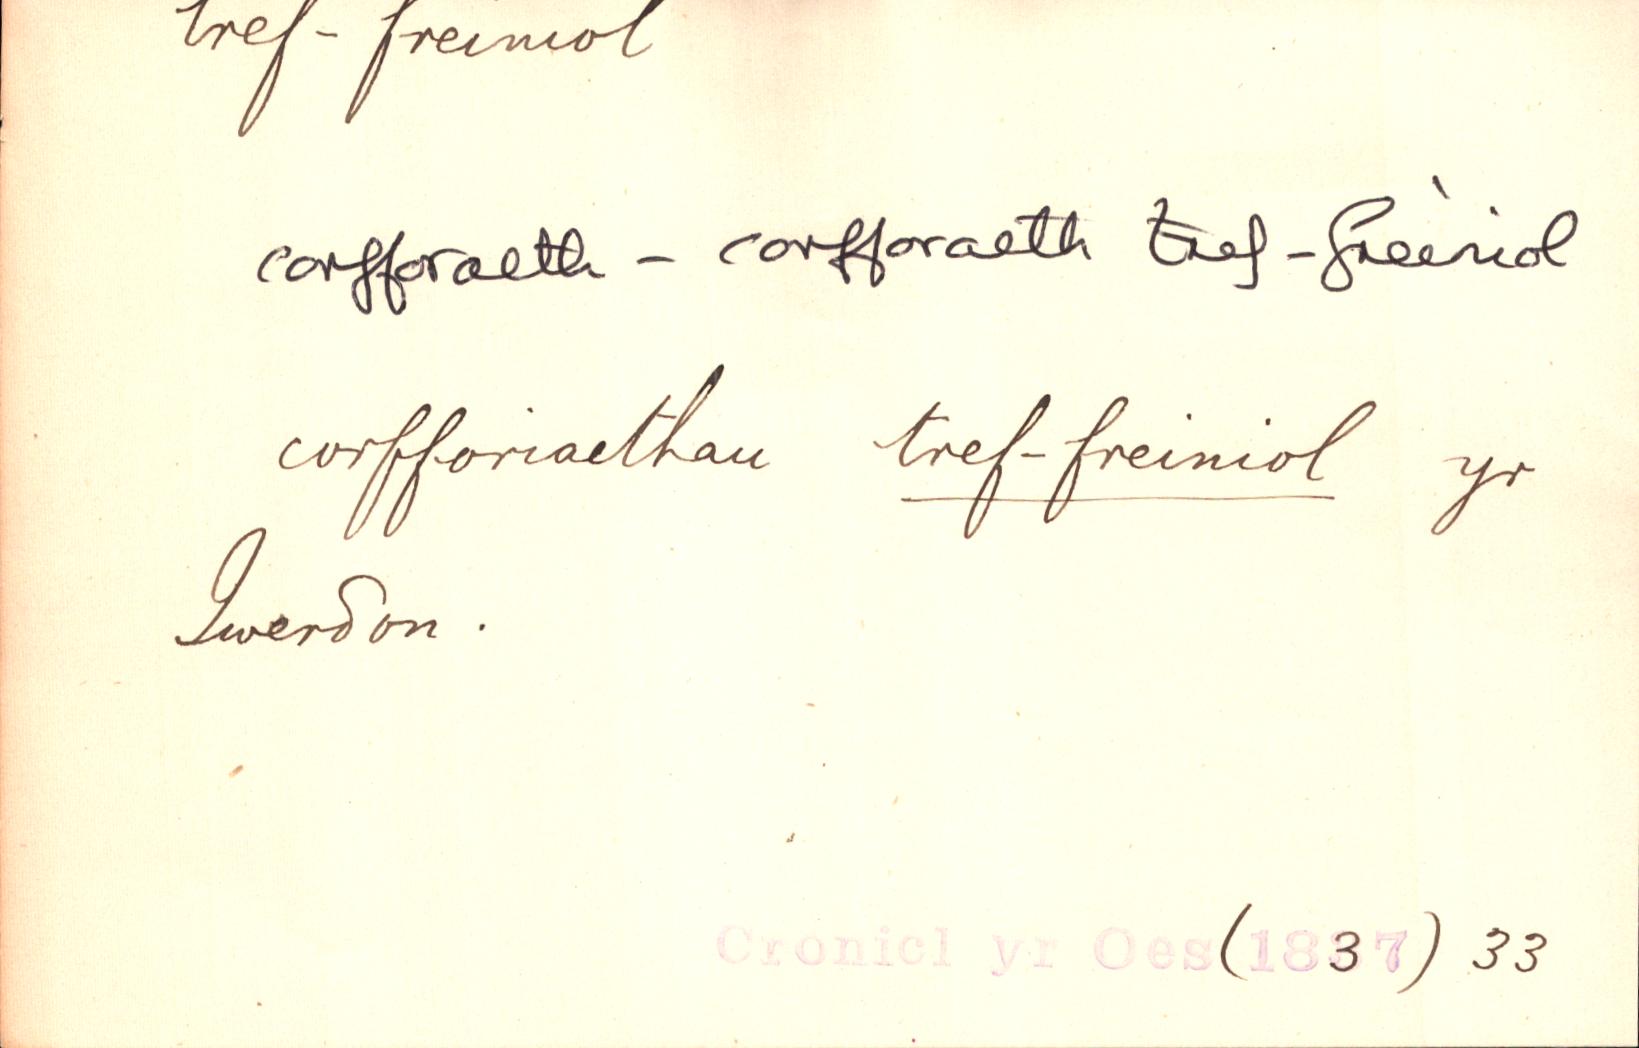 tref-freiniol
corfforaeth - corfforaeth tref-freìniol
corfforiaethau tref-freiniol yr
Iwerδon.
Cronicl yr Oes (1837) 33